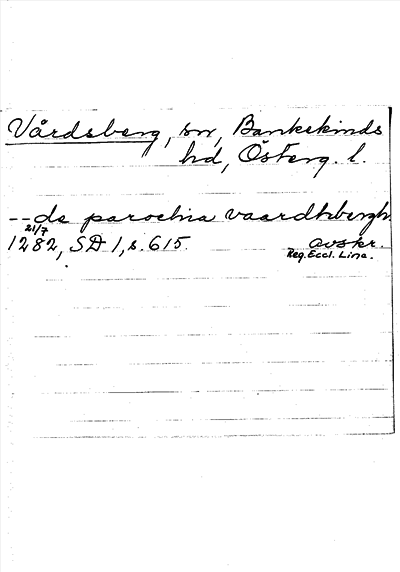 Vårdsberg, sn, Bankekinds
hd, Österg. l.
-- de parochia vaardhbergh
21/7
1282, SD 1, s. 615. avskr.
Reg. Eccl. Linc.